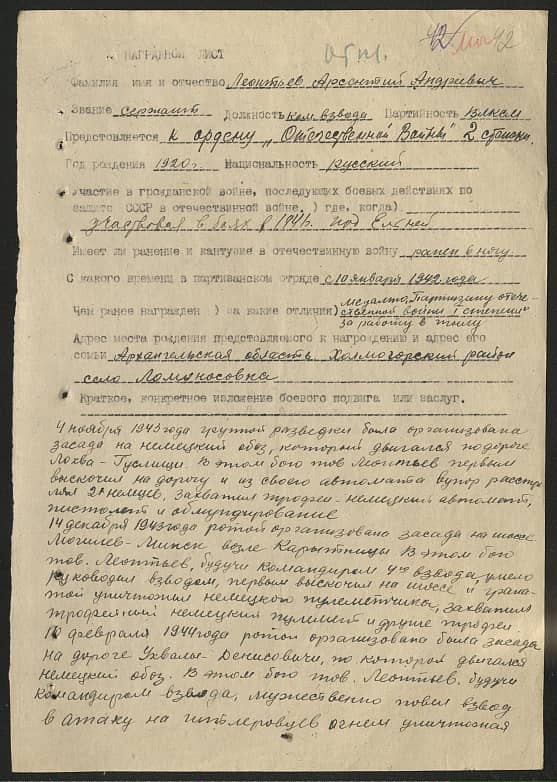 42 42
НАГРАДНОЙ ЛИСТ
Фамилия имя и отчество Леонтьев Арсентий Андреевич
Звание сержант Должность ком. взвода Партийность ВЛКСМ
Предстовляется к ордену „Отечественной Войны" 2 степени.
Год рождения 1920 г. Национальность русский
Участие в гражданской войне, последующих боевых действиях по
защите СССР в отечественной войне. ) где. когда)
участвовал в боях в 1941г. под Ельней
Имеет ли ранение и кантузие в отечественную войну ранен в ногу
С какого времени в партизанском отряде с 10 января 1942 года
медалью „Партизану отече-
Чем ранее награжден ) за какие отличии) ственной войны I степени"
за работу в тылу
Адрес места рождения предстовляемого к награждению и адрес его
семьи Архангельская область Холмогорский район
село Ломоносовка
Краткое, конкретное изложение боевого подвига или заслуг.
4 ноября 1943 года группой разведки была организована
засада на немецкий обоз, который двигался по дороге
Лохва - Гуслищи. В этом бою тов. Леонтьев первым
выскочил на дорогу и из своего автомата в упор расстре
лял 2х немцев, захватил трофеи - немецкий автомат,
пистолет и обмундирование
14 декабря 1943 года ротой организована засада на шоссе
Могилев - Минск возле В этом бою
тов. Леонтьев, будучи командиром 4го взвода, умело
руководил взводом, первым выскочил на шоссе и грана-
той уничтожил немецкого пулеметчика, захватил
трофейный немецкий пулемет и другие трофеи
10 февраля 1944 года ротой организована была засада
на дороге Ухвалы - Денисовичи, по которой двигался
немецкий обоз. В этом бою тов. Леонтьев, будучи
командиром взвода, мужественно повел взвод
в атаку на гитлеровцев огнем уничтожая